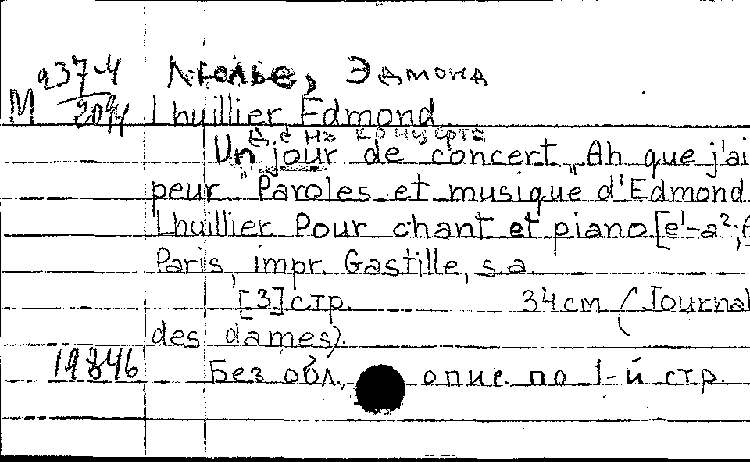 М 937-4 Люлье, Эдмонд
2094 Lhuillier, Edmond
Un jour de concert „Ah que j'ai
peur" Paroles et musique d'Edmond
Lhuillier Pour chant et piano [e¹-a²;
Paris, impr. Gastille, s.a.
[3] стр. 34 см (Journal
des dames).
19846 Без обл., опис. по 1-й стр.